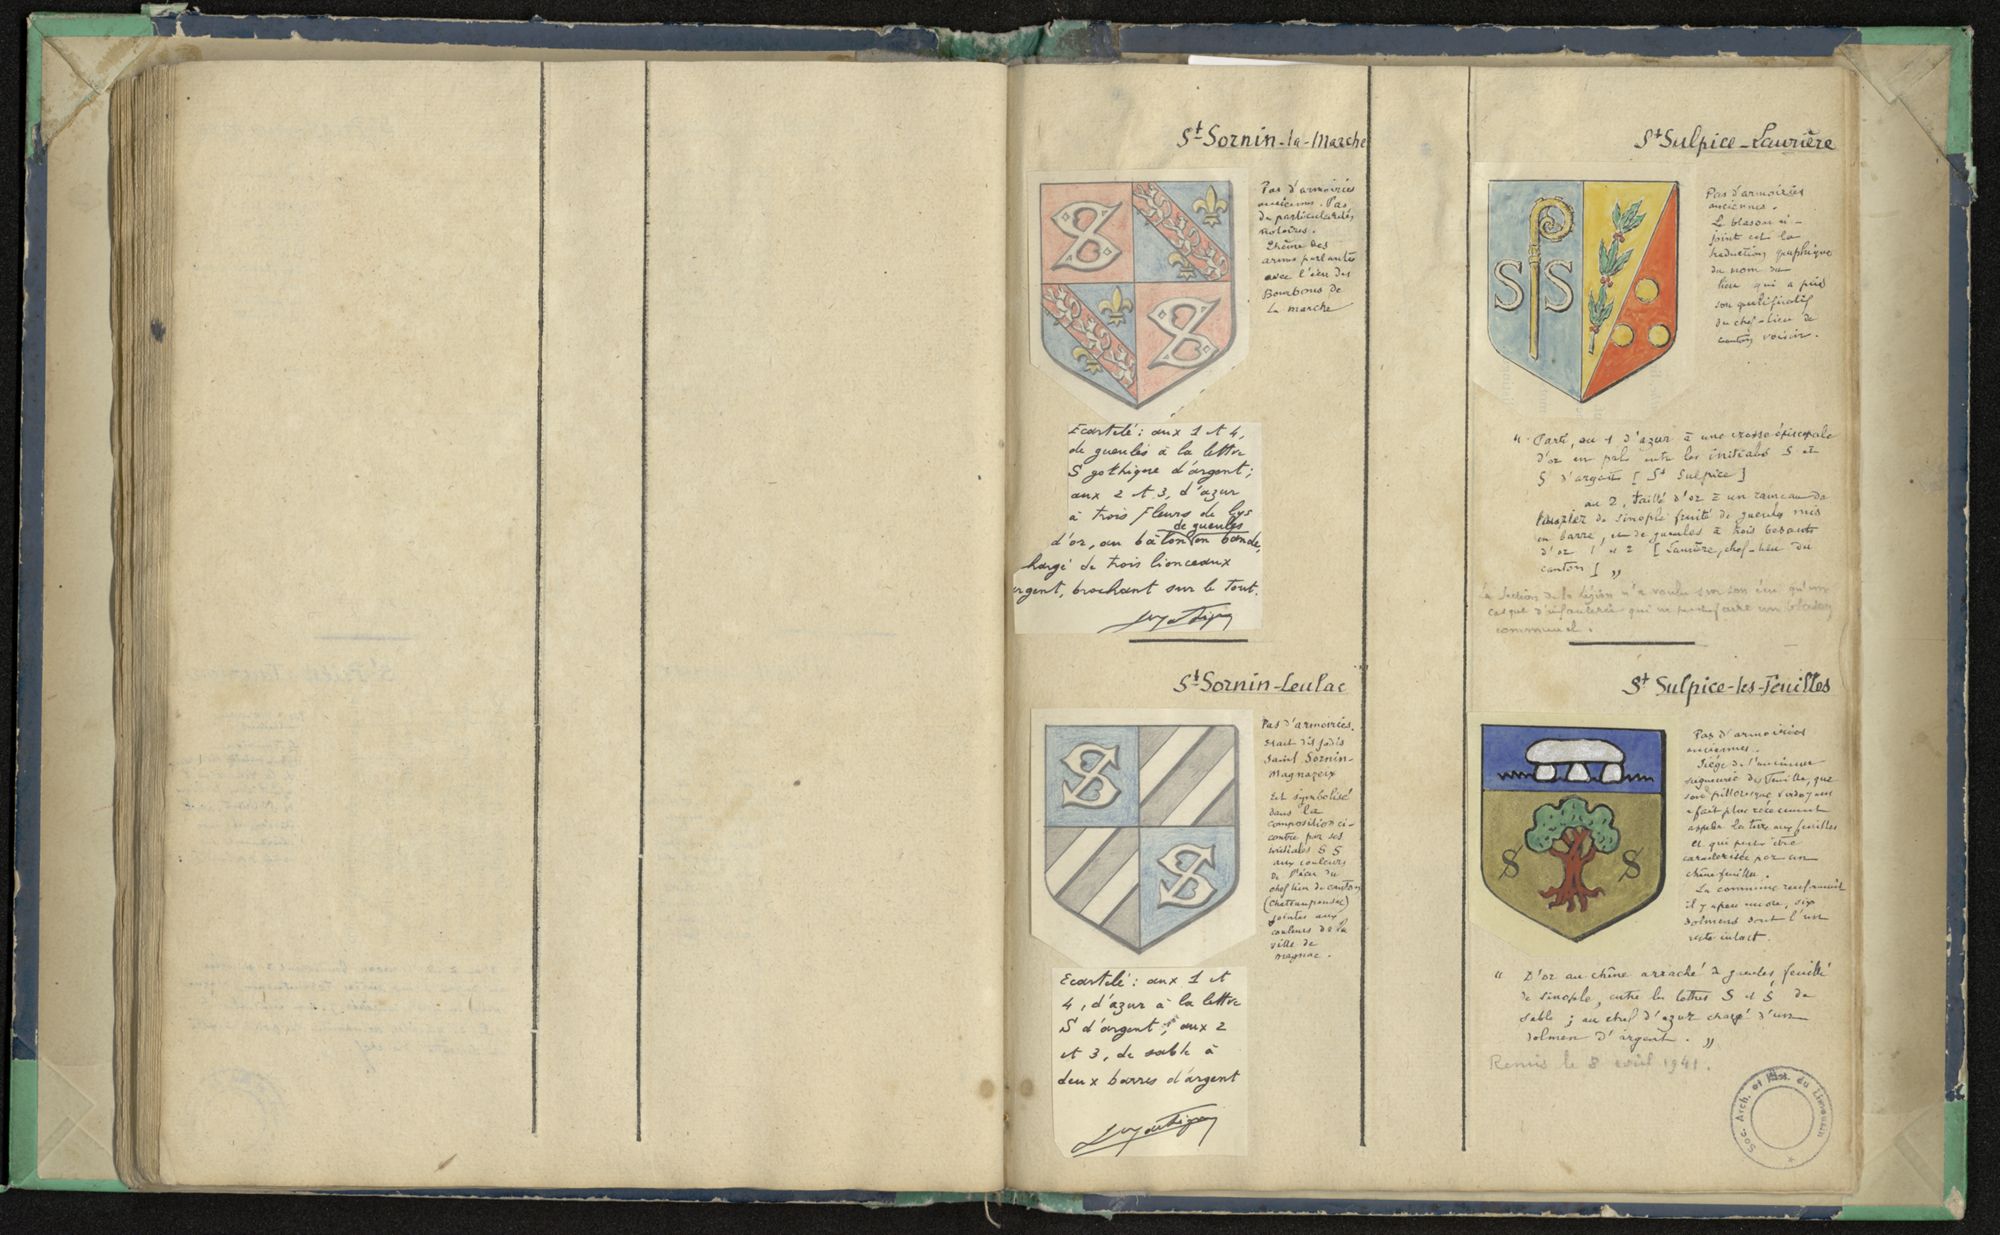 St Sornin-la-Marche
Pas d'armoiries
anciennes. Pas
de particularités
notoires.
Thème des
armes parlantes
avec l'écu des
Bourbons de
La marche
Ecartelé : aux 1 et 4,
de gueules à la lettre
S gothique d'argent ;
aux 2 et 3, d'azur
à trois fleurs de lys
de gueules
d'or, au bâton en bande,
hargé de trois lionceaux
argent, brochant sur le tout.
St Sornin-Leulac
Pas d'armoiries.
Etait dit jadis
Saint Sornin-
Magnazeix
Est symbolisé
dans la
composition ci-
contre par ses
initiales S S
aux couleurs
de l'écu du
chef lieu de canton
(Chateauponsac)
jointes aux
couleurs de la
ville de
magnac.
Ecartelé : aux 1 et
4, d'azur à la lettre
S d'argent ; aux 2
et 3, de sable à
deux barres d'argent
St Sulpice-Laurière
S S
Pas d'armoiries
anciennes.
Le blason ci-
joint est la
traduction graphique
du nom du
lieu qui a pris
son qualificatif
du chef-lieu de
canton voisin.
" Parti, au 1 d'azur à une crosse épiscopale
d'or en pal entre les initiales S et
S d'argent [ St Sulpice ]
au 2, taillé d'or à un rameau de
laurier de sinople fruité de gueules mis
en barre, et de gueules à trois besants
d'or 1 et 2 [ Laurière, chef-lieu du
canton ] "
La section de la Légion n'a voulu sur son écu qu'un
casque d'infanterie qui ne peut faire un blason
communal.
St Sulpice-les-Feuilles
S S
Pas d'armoiries
anciennes.
Siège de l'ancienne
seigneurie des Feuilles, que
son pittoresque verdoyant
a fait plus récemment
appeler la terre aux feuilles
et qui peut être
caractérisée par un
chêne feuillu.
La commune renfermait
il y a peu encore, six
dolmens dont l'un
reste intact.
" D'or au chêne arraché de gueules, feuillé
de sinople, entre les lettres S et S de
sable ; au chef d'azur chargé d'un
dolmen d'argent. "
Remis le 8 avril 1941.
Soc. Arch. et Hist. du Limousin